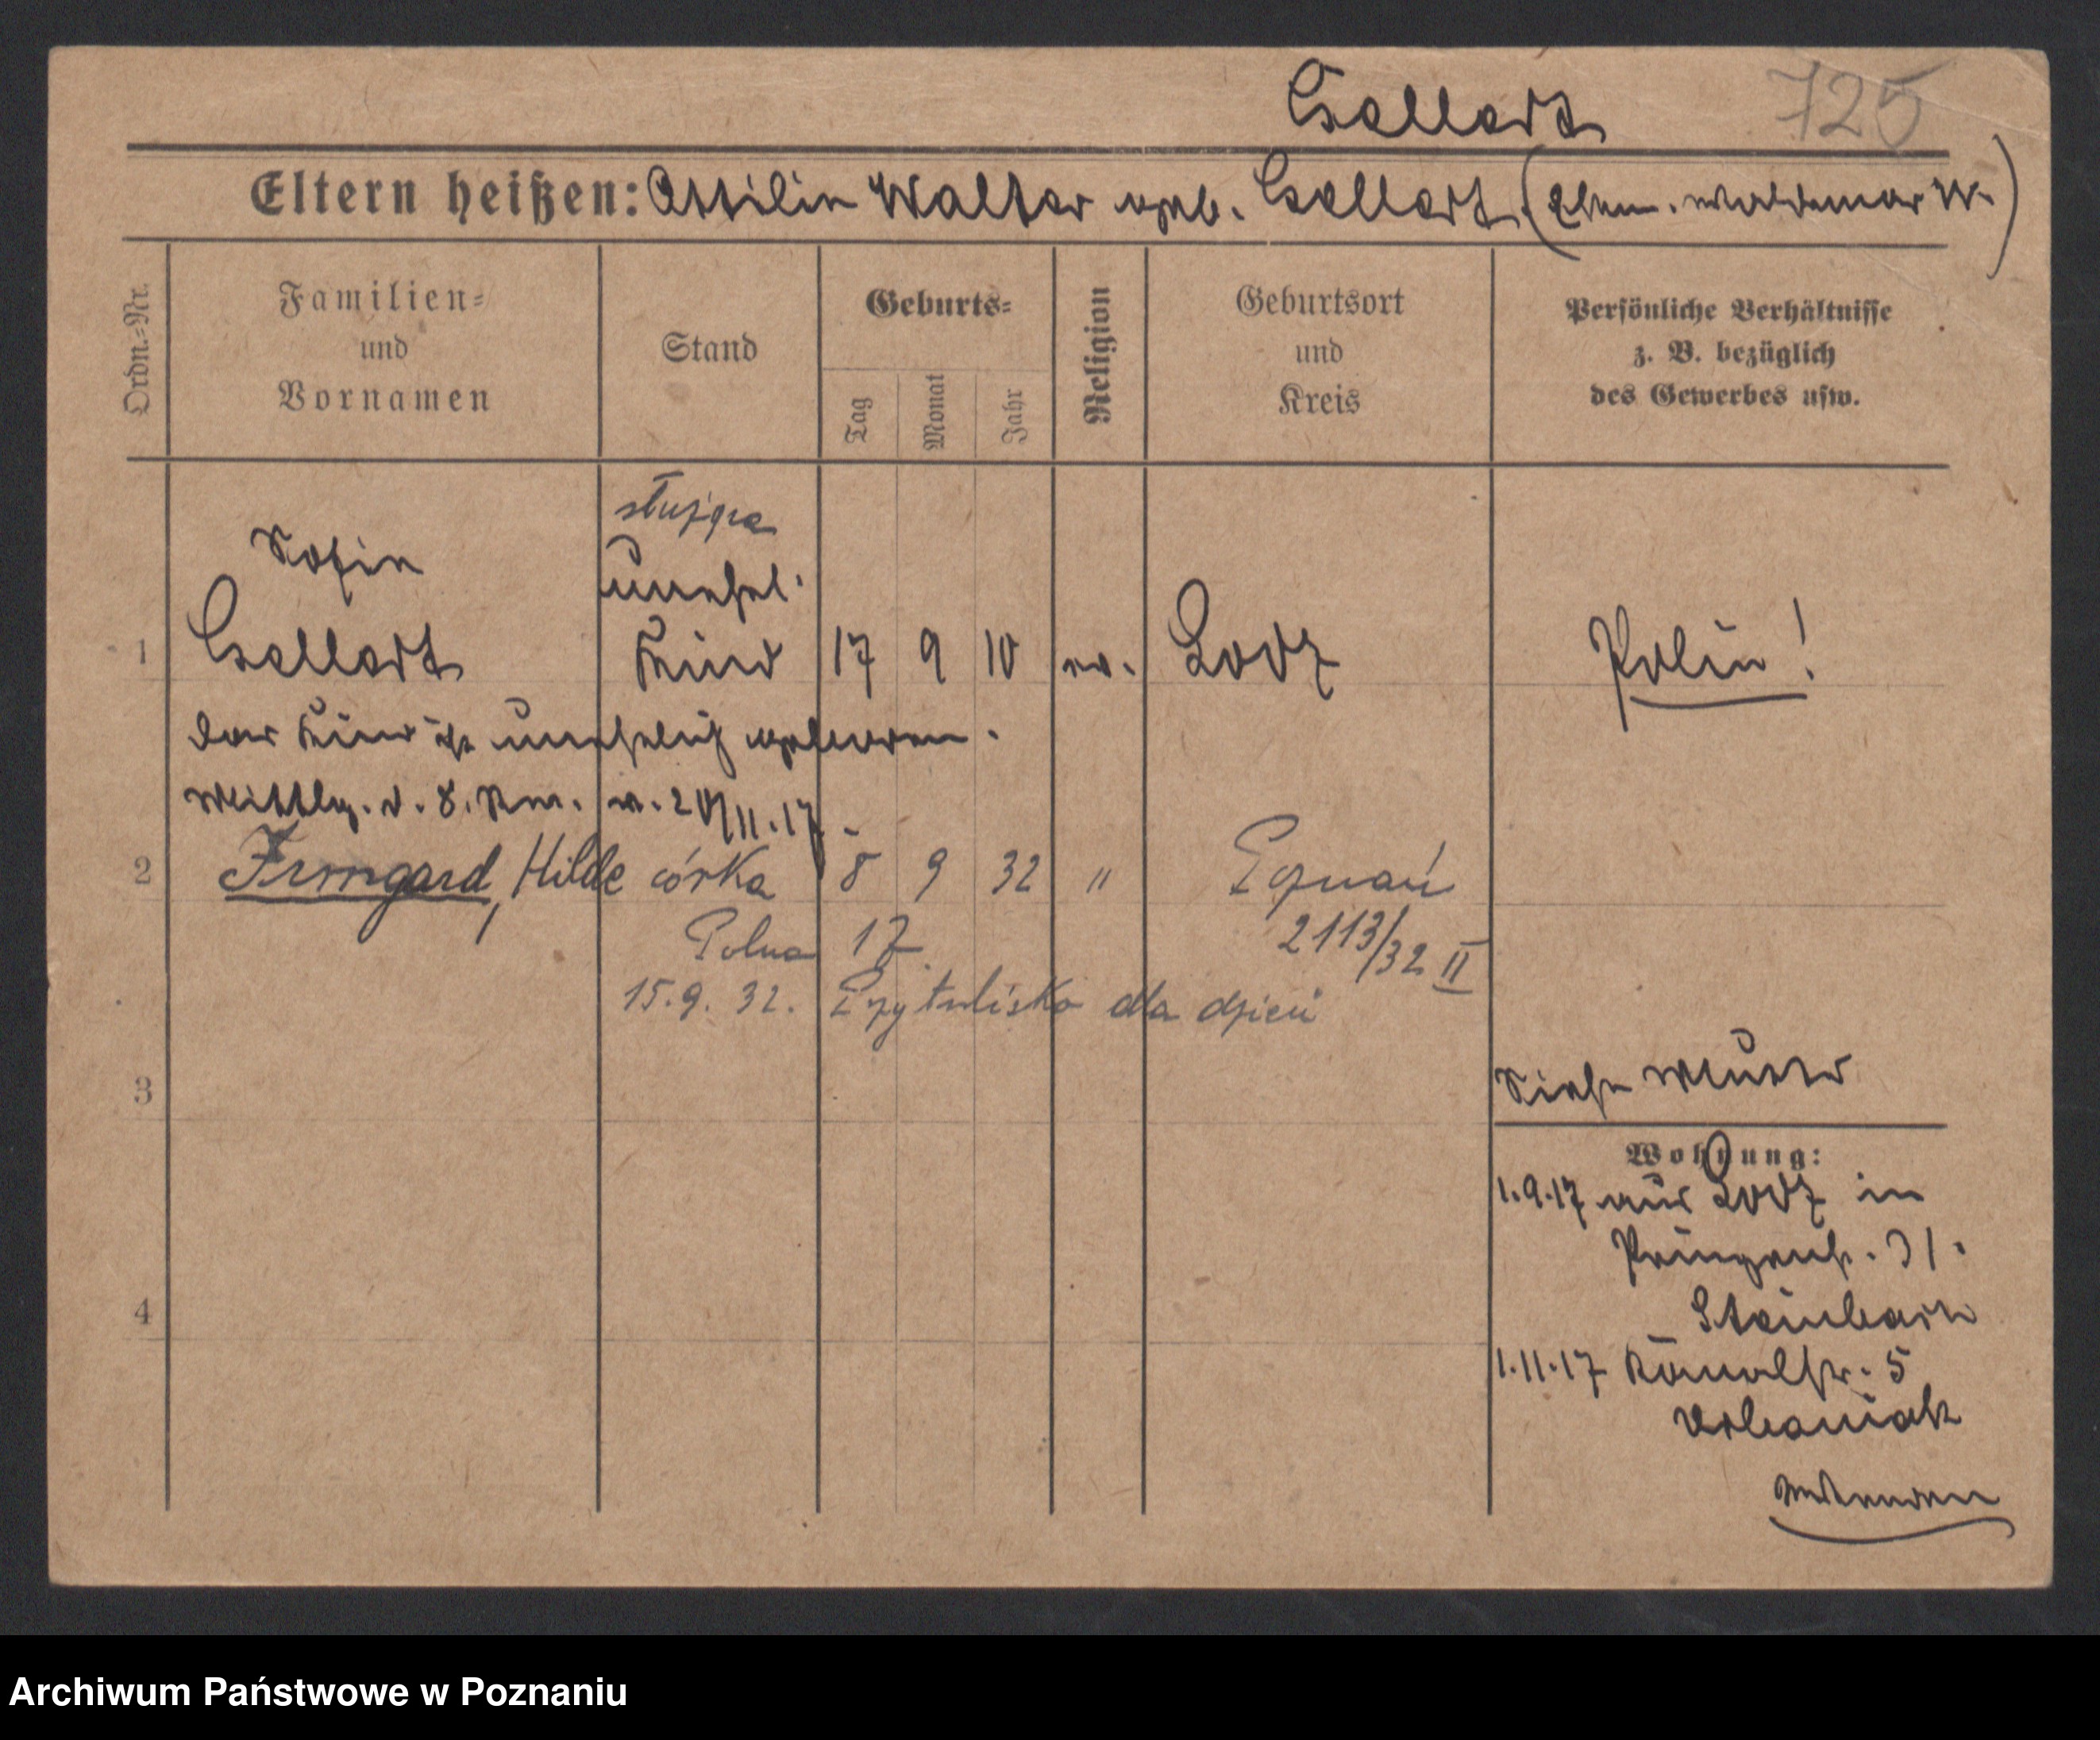 Gellert 725
Eltern heißen: Ottilie Walter geb. Gellert (Ehem. Waldemar W.)
Ordn.-Nr.
Familien-
und
Vornamen
Stand
Geburts-
Tag
Monat
Jahr
Religion
Geburtsort
und
Kreis
Persönliche Verhältnisse
z. B. bezüglich
des Gewerbes usw.
służąca
Sofie
unehel.
1 Gellert Kind 17 9 10 ev. Lodz Polin!
Das Kind ist unehelich geboren.
Mittlg. d. 8. Rev. v. 20/11.17.
2 Irmgard, Hilde córka 8 9 32 " Poznań
Polna 17 2113/32 II
15.9.32. Przytulisko dla dzieci
3 Siehe Mutter
Wohnung:
1.9.17 aus Lodz in
Prinzenstr. 31.
4
1.11.17 5
Urbaniak
umwenden
Archiwum Państwowe w Poznaniu